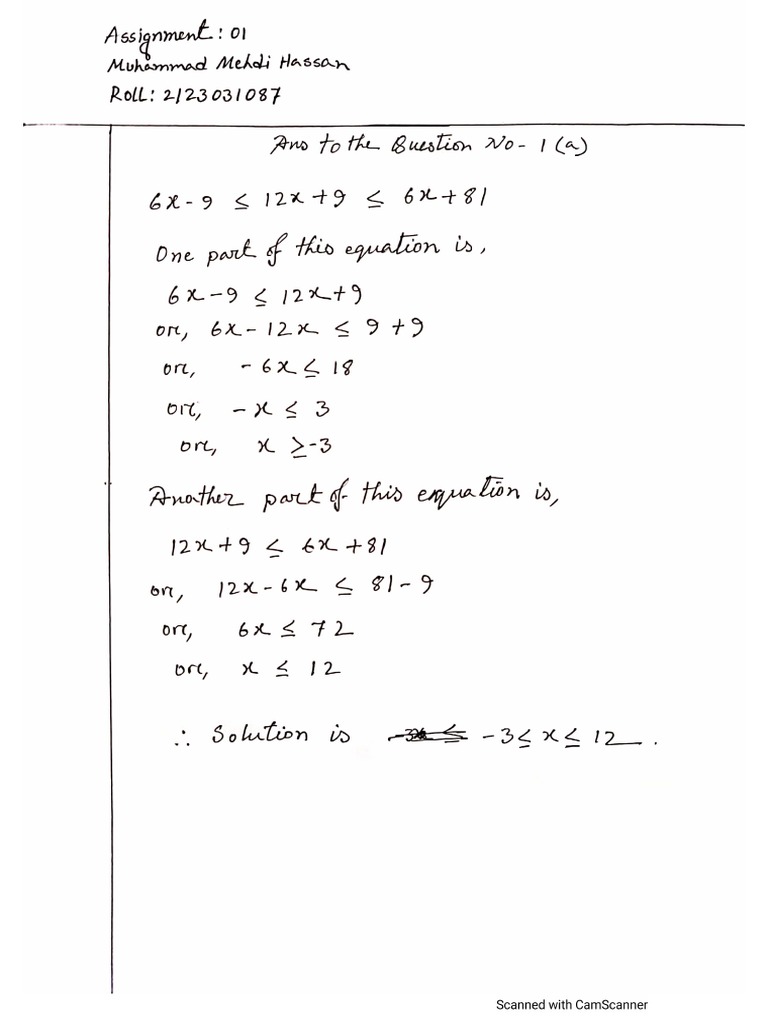 Assignment: 01
Muhammad Mehdi Hassan
Roll: 2123031087
Ans to the Question No- 1 (a)
6x - 9 ≤ 12x + 9 ≤ 6x + 81
One part of this equation is,
6x - 9 ≤ 12x + 9
or, 6x - 12x ≤ 9 + 9
or, - 6x ≤ 18
or, - x ≤ 3
or, x ≥ -3
Anather part of this equation is,
12x + 9 ≤ 6x + 81
or, 12x - 6x ≤ 81 - 9
or, 6x ≤ 72
or, x ≤ 12
∴ Solution is -3 ≤ x ≤ 12.
Scanned with CamScanner